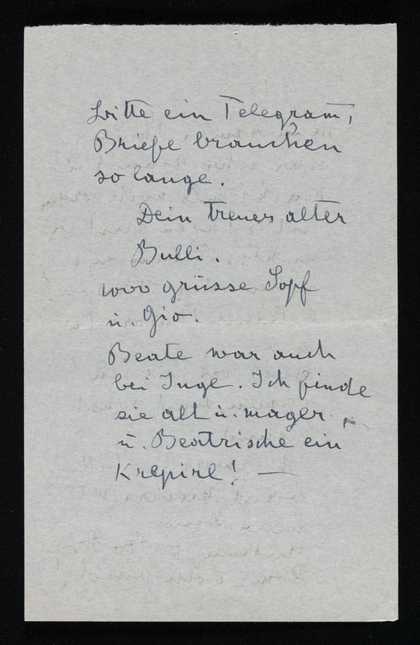 bitte ein Telegram,
Briefe brauchen
so lange.
Dein treuer alter
Bulli.
1000 grüsse Sopf
u. Gio.
Beate war auch
bei Inge. Ich finde
sie alt u. mager
u. Beatrische ein
Krepirl! —